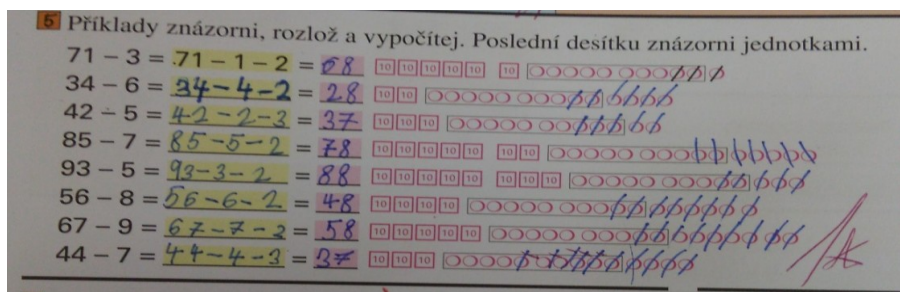 5 Příklady znázorni, rozlož a vypočítej. Poslední desítku znázorni jednotkami.
71 – 3 = 71 – 1 – 2 = 68 10 10 10 10 10 10
34 – 6 = 34 – 4 – 2 = 28 10 10
42 – 5 = 42 – 2 – 3 = 37 10 10 10
85 – 7 = 85 – 5 – 2 = 78 10 10 10 10 10 10 10
93 – 5 = 93 – 3 – 2 = 88 10 10 10 10 10 10 10 10
56 – 8 = 56 – 6 – 2 = 48 10 10 10 10
67 – 9 = 67 – 7 – 2 = 58 10 10 10 10 10
44 – 7 = 44 – 4 – 3 = 37 10 10 10